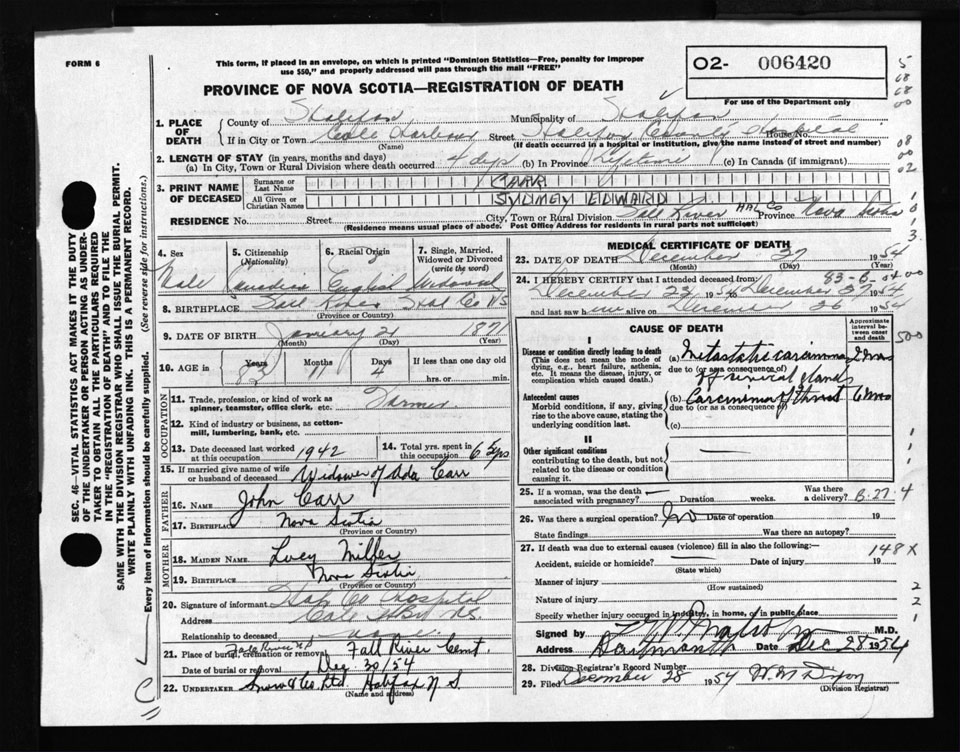 FORM 6
This form, if placed in an envelope, on which is printed "Dominion Statistics—Free, penalty for improper
use $50," and properly addressed will pass through the mail "FREE"
O2- 006420
PROVINCE OF NOVA SCOTIA—REGISTRATION OF DEATH
For use of the Department only
1. PLACE OF DEATH
County of Halifax Municipality of Halifax
If in City or Town Cole Harbour Street Halifax County Hospital House No.
(Name) (If death occurred in a hospital or institution, give the name instead of street and number)
2. LENGTH OF STAY (in years, months and days)
(a) In City, Town or Rural Division where death occurred 4 dys (b) In Province Lifetime (c) In Canada (if immigrant)
3. PRINT NAME OF DECEASED
Surname or Last Name CARR
All Given or Christian Names SYDNEY EDWARD
RESIDENCE No. Street City, Town or Rural Division Fall River HAL Co Province Nova Scotia
(Residence means usual place of abode. Post Office Address for residents in rural parts not sufficient)
4. Sex Male
5. Citizenship (Nationality) Canadian
6. Racial Origin English
7. Single, Married, Widowed or Divorced (write the word) Widowed
8. BIRTHPLACE Hal Co NS
(Province or Country)
9. DATE OF BIRTH January 21 1871
(Month) (Day) (Year)
10. AGE in Years Months Days If less than one day old
11 4 hrs. or min.
OCCUPATION
11. Trade, profession, or kind of work as spinner, teamster, office clerk, etc. Farmer
12. Kind of industry or business, as cotton-mill, lumbering, bank, etc.
13. Date deceased last worked at this occupation 1942
14. Total yrs. spent in this occupation
15. If married give name of wife or husband of deceased Widower of Ada Carr
FATHER
16. NAME John Carr
17. BIRTHPLACE Nova Scotia
(Province or Country)
MOTHER
18. MAIDEN NAME Lucy Miller
19. BIRTHPLACE Nova Scotia
(Province or Country)
20. Signature of informant Hfx Co Hospital
Address Cole Hbr NS.
Relationship to deceased none
21. Place of burial, cremation or removal Fall River Cemt.
Date of burial or removal Dec 30/54
22. UNDERTAKER Snow & Co Ltd. Halifax N S.
(Name and address)
MEDICAL CERTIFICATE OF DEATH
23. DATE OF DEATH December 27 1954
(Month) (Day) (Year)
24. I HEREBY CERTIFY that I attended deceased from:
December 23 1954 to December 27 1954
and last saw him alive on December 26 1954
CAUSE OF DEATH
Approximate interval between onset and death
I
Disease or condition directly leading to death (a) Metastatic carcinoma 2 mos
(This does not mean the mode of dying, e.g., heart failure, asthenia, etc. It means the disease, injury, or complication which caused death.)
due to (or as a consequence of)
of cervical glands
Antecedent causes
Morbid conditions, if any, giving rise to the above cause, stating the underlying condition last.
(b) Carcinoma of throat 6 mos
due to (or as a consequence of)
(c)
II
Other significant conditions
contributing to the death, but not related to the disease or condition causing it.
25. If a woman, was the death associated with pregnancy? — Duration weeks. Was there a delivery?
B-27-4
26. Was there a surgical operation? No Date of operation 19
State findings Was there an autopsy?
27. If death was due to external causes (violence) fill in also the following:—
148X
Accident, suicide or homicide? Date of injury 19
(State which)
Manner of injury
(How sustained)
Nature of injury
Specify whether injury occurred in industry, in home, or in public place
Signed by M.D.
Address Dartmouth Date Dec 28 1954
28. Division Registrar's Record Number
29. Filed December 28 1954 W. M Dixon
(Division Registrar)
SEC. 46—VITAL STATISTICS ACT MAKES IT THE DUTY
OF THE UNDERTAKER OR PERSON ACTING AS UNDER-
TAKER TO OBTAIN ALL THE PARTICULARS REQUIRED
IN THE "REGISTRATION OF DEATH" AND TO FILE THE
SAME WITH THE DIVISION REGISTRAR WHO SHALL ISSUE THE BURIAL PERMIT.
WRITE PLAINLY WITH UNFADING INK. THIS IS A PERMANENT RECORD.
Every item of information should be carefully supplied. (See reverse side for instructions.)